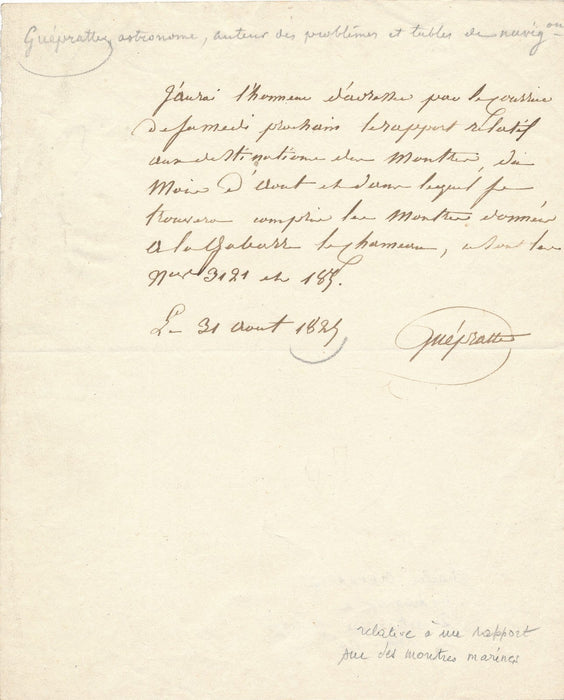 Guépratte, astronome, auteur des problèmes et tables de navigon
J'aurai l'honneur d'adresser par le courrier
de samedi prochain le rapport relatif
aux destinations des Montres, du
Mois d'Aout et dans lequel se
trouvera compris les Montres données
a la Gabarre le Chameau, ce sont les
Nos 3121 et
Le 31 aout
Guépratte
relative à un rapport
sur des montres marines